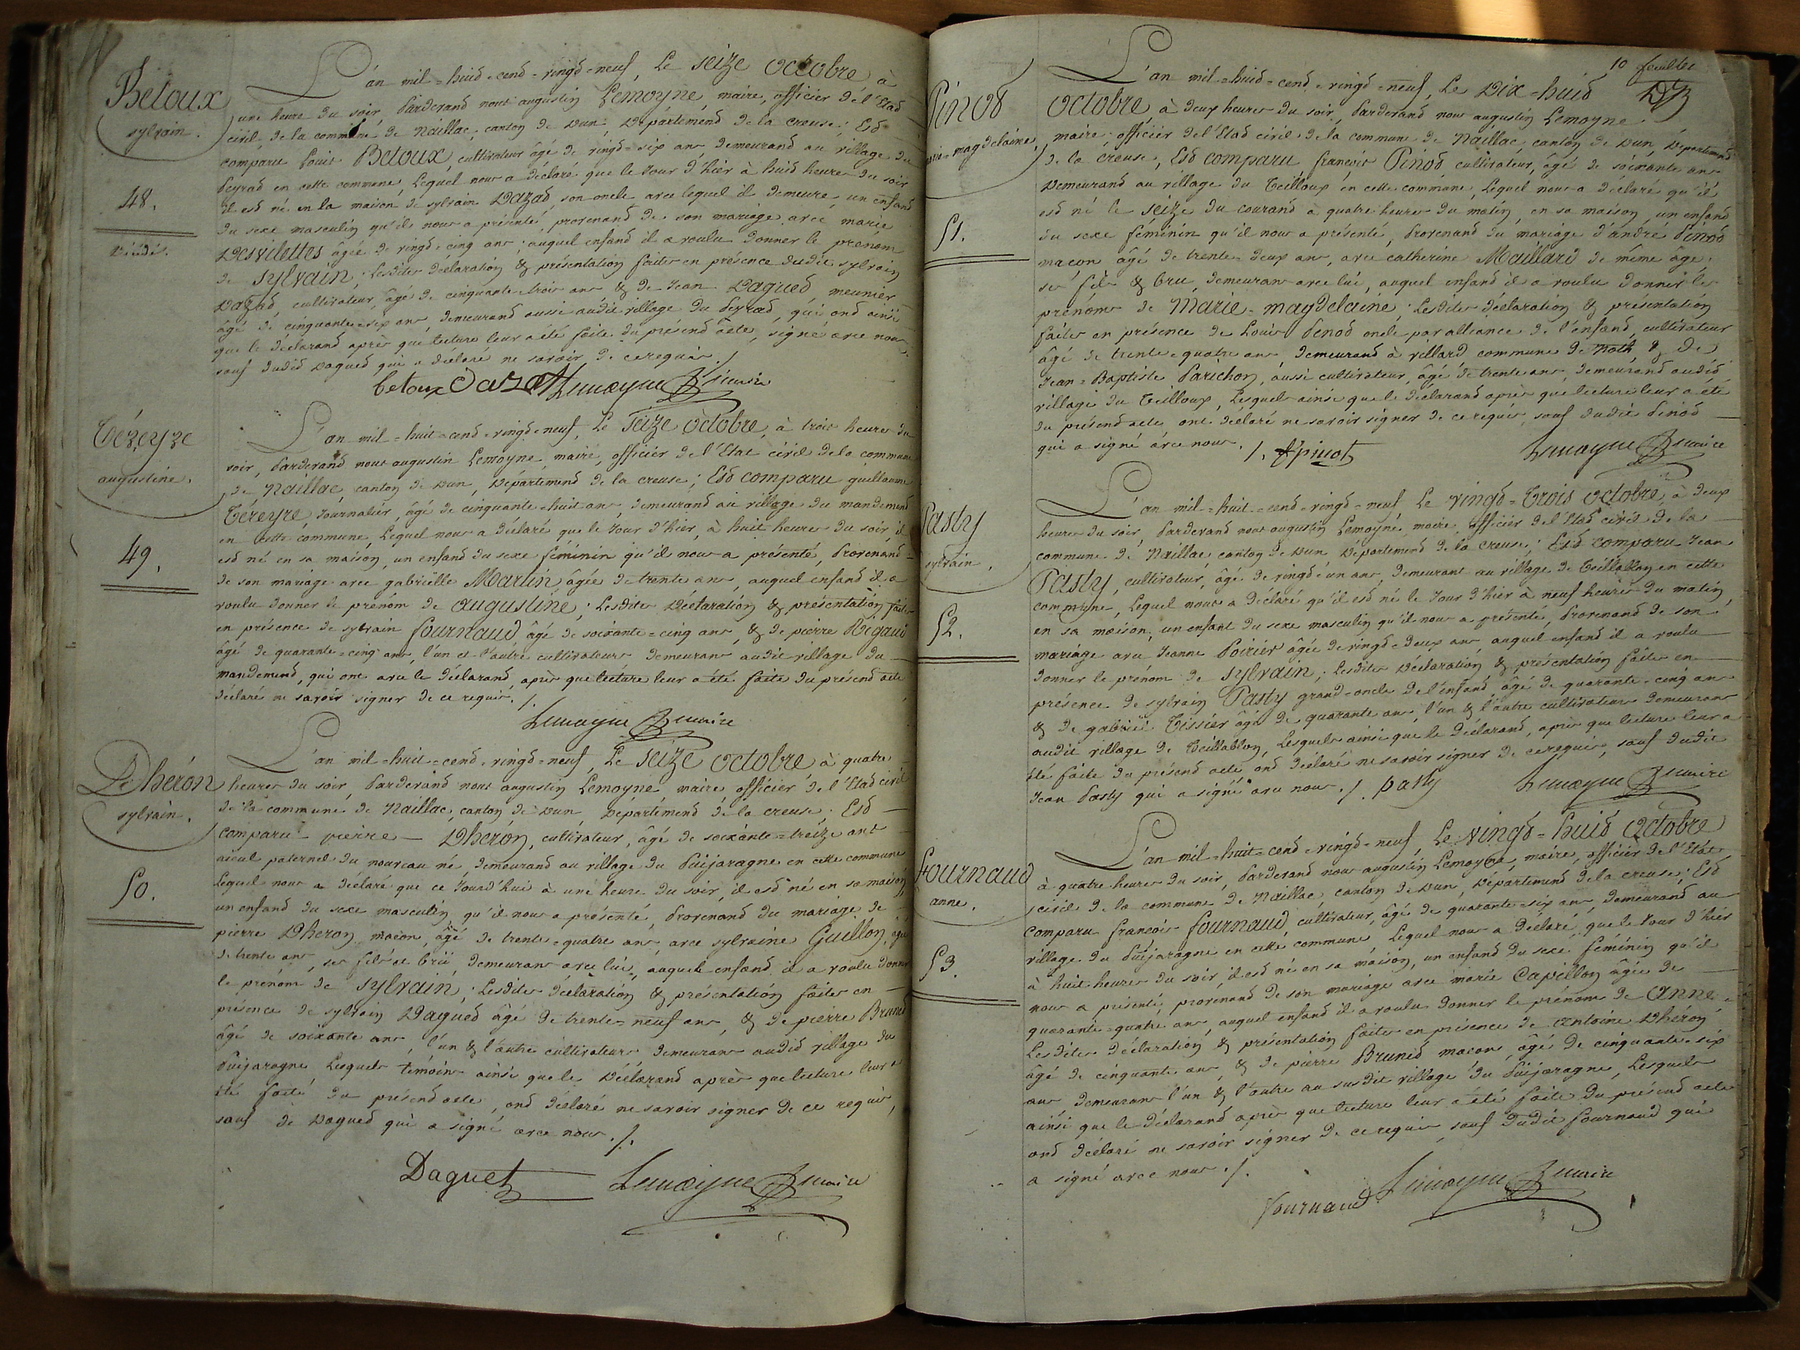 Betoux
sylvain.
48.
L'an mil-huid-cend-vingd-neuf, Le seize octobre à
une heure du soir, Pardevand nous augustin Lemoyne, maire, officier de l'Etad
civil, de la commune de Naillac, canton de Dun, Département de la creuse; Esd
comparu Louis Betoux, cultivateur âgé de vingd-six ans demeurand au village du
Peyrad en cette commune, Lequel nous a déclaré que le jour d'hier à huid heures du soir
il esd né en la maison de sylvain Dazad, son oncle avec lequel il demeure, un enfand
du sexe masculin qu'il nous a présenté, provenand de son mariage avec marie
Desvilettes âgée de vingd-cinq ans; auquel enfand il a voulu donner le prénom
de sylvain; Lesdites déclaration & présentation faites en présence dudit sylvain
Dazad, cultivateur, âgé de cinquante-trois ans & de Jean Dagued meunier
âgé de cinquante-six ans, demeurand aussi audit village du Peyrad, qui ond ainsi
que le déclarand après que lecture leur a été faite du présend acte, signé avec nous,
sauf dudid Dagued qui a déclaré ne savoir de ce requis ./.
betoux Dazat Lemoyne maire
Téreyre
augustine.
49.
L'an mil-huit-cend-vingd-neuf, Le seize octobre, à trois heures du
soir, Pardevand nous augustin Lemoyne, maire, officier de l'Etat civil de la commune
de Naillac, canton de Dun, Département de la creuse; Esd comparu guillaume
Téreyre, Journalier, âgé de cinquante-huit ans, demeurand au village du mandemend
en cette commune, Lequel nous a déclaré que le Jour d'hier, à huit heures du soir, il
esd né en sa maison, un enfand du sexe féminin qu'il nous a présenté, Provenand
de son mariage avec gabrielle Martin âgée de trente ans, auquel enfand il a
voulu donner le prénom de augustine; Lesdites Déclaration & présentation faites
en présence de sylvain fournaud âgé de soixante-cinq ans, & de pierre Rigaud
âgé de quarante-cinq ans, l'un et l'autre cultivateurs demeurans audit village du
mandemend, qui ont avec le déclarand, après que lecture leur a été faite du présend acte
déclaré ne savoir signer de ce requis ./.
Lemoyne maire
Dhéron
sylvain.
50.
L'an mil-huit-cend-vingd-neuf, Le seize octobre à quatre
heures du soir, Pardevand nous augustin Lemoyne maire officier de l'Etad civil
de la commune de Naillac, canton de Dun, Département de la creuse; Esd
comparu pierre Dheron, cultivateur, âgé de soixante-treize ans
aieul paternel du nouveau né, demeurand au village du Puijaragne en cette commune
Lequel nous a déclaré que ce Jourd'hui à une heure du soir, il esd né en sa maison
un enfand du sexe masculin, qu'il nous a présenté, Provenand du mariage de
pierre Dheron maçon, âgé de trente-quatre ans, avec sylvaine Guillon âgée
de trente ans, ses fils et bru, demeurans avec lui, auquel enfand, il a voulu donner
le prénom de sylvain; Lesdites déclaration & présentation faites en
présence de sylvain Dagued âgé de trente-neuf ans, & de pierre Bruned
âgé de soixante ans, l'un & l'autre cultivateurs demeurans audid village du
Puijaragne, Lesquels témoins ainsi que le Déclarand après que lecture leur a
été faite du présend acte, ond déclaré ne savoir signer de ce requis,
sauf de Dagued qui a signé avec nous ./.
Daguet Lemoyne maire
10 feuillet
Pinod
marie-magdelaine.
51.
L'an mil-huid-cend-vingd-neuf, Le Dix-huid
octobre, à deux heures du soir, Pardevand nous augustin Lemoyne
maire, officier del'Etad civil de la commune de Naillac, canton de Dun Département
de la creuse, Esd comparu françois Pinod, cultivateur, âgé de soixante ans
Demeurand au village du Teilloux en cette commune, Lequel nous a déclaré qu'il
esd né le seize du courand à quatre heures du matin, en sa maison, un enfand
du sexe féminin qu'il nous a présenté, Provenand du mariage d'andré Pinod
maçon âgé de trente-deux ans, avec catherine Maillard de même âge,
ses fils & bru, demeurans avec lui, auquel enfand il a voulu donner les
prénoms de Marie-magdelaine; Lesdites déclaration & présentation
faites en présence de Louis Pinod oncle par alliance de l'enfand, cultivateur
âgé de trente-quatre ans demeurand à villard commune de Noth, & de
Jean-Baptiste Parichon, aussi cultivateur, âgé de trente ans, demeurand audid
village du Teilloux, Lesquels ainsi que le déclarand après que lecture leur a été
du présend acte ont déclaré ne savoir signer de ce requis, sauf dudit Pinod
qui a signé avec nous ./. pinot Lemoyne maire
Pasty
sylvain.
52.
L'an mil-huit-cend-vingd-neuf Le vingd-Trois octobre à deux
heures du soir, Pardevand nous augustin Lemoyne, maire officier del'Etad civil de la
commune de Naillac, canton de Dun Département de la creuse; Esd comparu Jean
Pasty, cultivateur, âgé de vingd-un ans, demeurant au village de Teillablon en cette
commune, Lequel nous a déclaré qu'il esd né le Jour d'hier à neuf heures du matin
en sa maison, un enfant du sexe masculin qu'il nous a présenté, Provenand de son
mariage avec Jeanne Poirier âgée de vingd-deux ans, auquel enfand il a voulu
donner le prénom de sylvain; Lesdites Déclaration & présentation faites en
présence de sylvain Pasty grand-oncle de l'enfand âgé de quarante-cinq ans
& de gabriel Tissier âgé de quarante ans, l'un & l'autre cultivateurs demeurans
audit village de Teillablon, Lesquels ainsi que le Déclarand, après que lecture leur a
été faite du présend acte, ond déclaré ne savoir signer de ce requis, sauf dudit
Jean Pasty qui a signé avec nous ./. pasty Lemoyne maire
fournaud
anne.
53.
L'an mil-huit-cend-vingd-neuf, Le vingd-huid octobre
à quatre heures du soir, Pardevand nous augustin Lemoyne, maire, officier de l'Etat
civil de la commune de Naillac, canton de Dun, Département de la creuse; Esd
comparu françois fournaud, cultivateur, âgé de quarante-six ans, demeurand au
village du Puijaragne en cette commune, Lequel nous a Déclaré, que le Jour d'hier
à huit heures du soir, il esd né en sa maison, un enfand du sexe féminin qu'il
nous a présenté, provenand de son mariage avec marie Capillon âgée de
quarante-quatre ans, auquel enfand il a voulu donner le prénom de anne
Lesdites déclaration & présentation faites en présence de antoine Dheron
âgé de cinquante ans, & de pierre Bruned maçon, âgé de cinquante-six
ans demeurans l'un & l'autre au susdit village du Puijaragne, Lesquels
ainsi que le déclarand après que lecture leur a été faite du présend acte
ond déclaré ne savoir signer de ce requis, sauf dudit fournaud qui
a signé avec nous ./.
fournaud Lemoyne maire